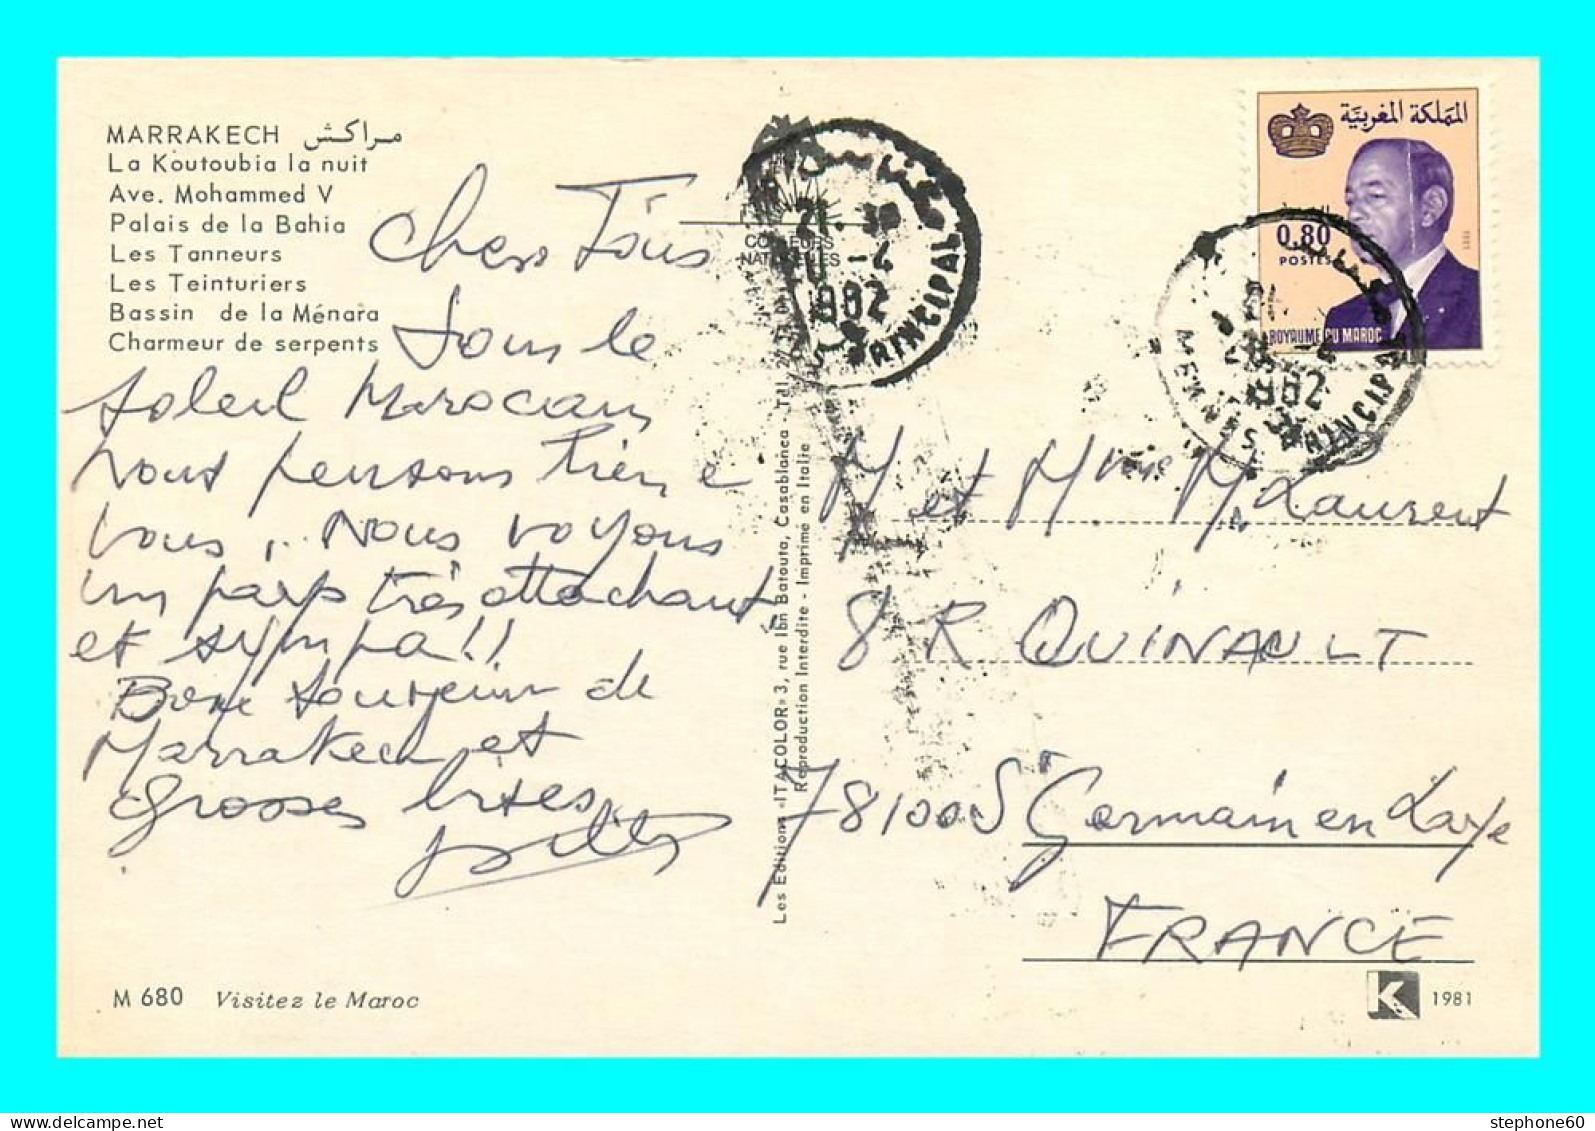 MARRAKECH مراكش
La Koutoubia la nuit
Ave. Mohammed V
Palais de la Bahia
Les Tanneurs
Les Teinturiers
Bassin de la Ménara
Charmeur de serpents
Chers Tous
Sous le
soleil Marocain
nous pensons bien à
vous. Nous voyons
un pays très attachant,
et sympa!!
Bon souvenir de
Marrakech et
grosses bises
M 680 Visitez le Maroc
COULEURS
NATURELLES
21. 30
20 -4
1982
MEKNES PRINCIPAL
Les Editions «ITACOLOR» 3, rue Ibn Batouta, Casablanca - Tél.
Reproduction Interdite - Imprimé en Italie
المملكة المغربية
0,80
POSTES
1981
ROYAUME DU MAROC
-4
1982
MEKNES PRINCIPAL
M et Mme M Laurent
8 R QUINAULT
78100 St Germain en Laye
FRANCE
K 1981
stephone60